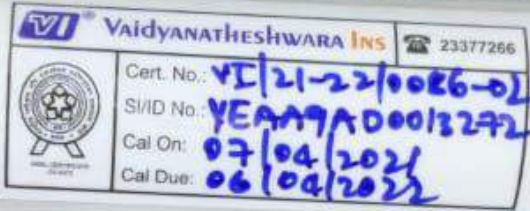 VI® VAIDYANATHESHWARA INS ☎ 23377266
Cert. No.: VI/21-22/0086-02
SI/ID No.: YEAA9AD0013272
Cal On: 07/04/2021
Cal Due: 06/04/2022